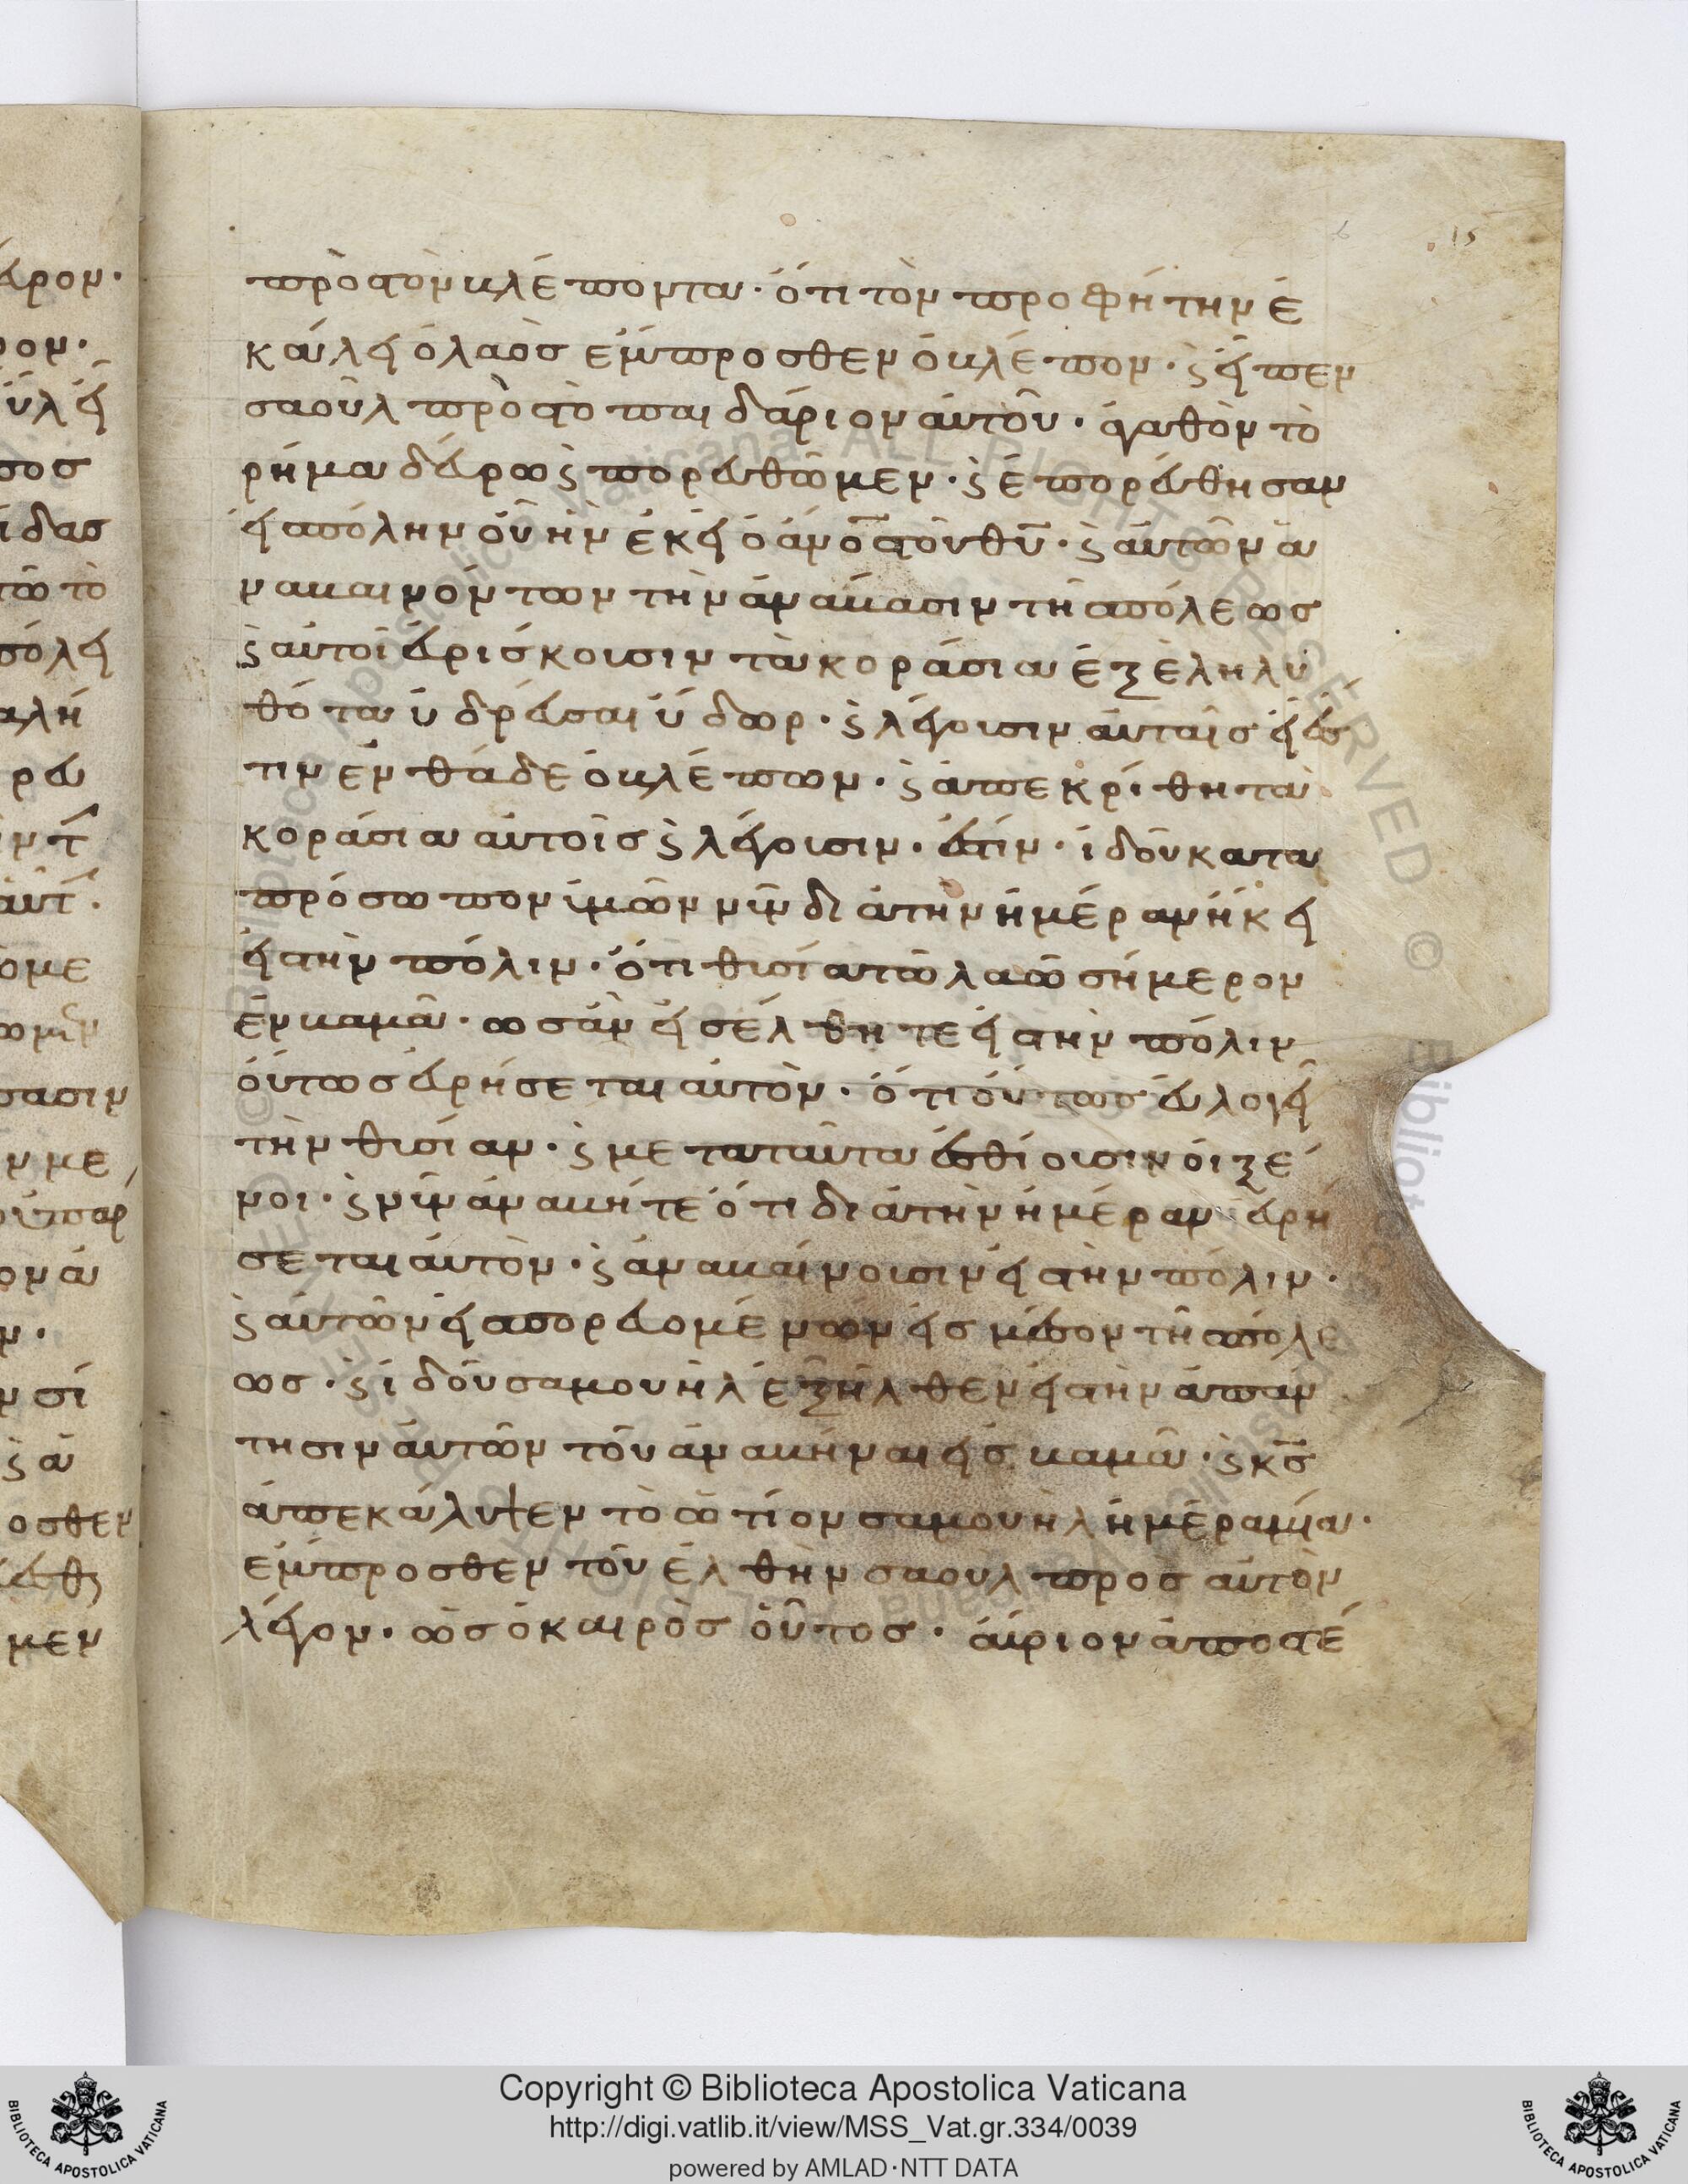 πρὸς τὸν βλέποντα· ὅτι τὸν προφήτην ἐ
κάλει ὁ λαὸς ἔμπροσθεν ὁ βλέπον· ϛ εἶπεν
σαοῦλ πρὸς τὸ παιδάριον αὐτοῦ· ἀγαθὸν τὸ
ρήμα δεῦρω ϛ πορευθῶμεν· ϛ ἐπορεύθησαν
εἰς πόλην οὗ ἦν ἐκεῖ ὁ ἀνο̅ς τοῦ θυ̅· ϛ αὐτῶν ἀ
ναβαινόντων τὴν ἀνάβασιν τῆς πόλεως
ϛ αὐτοὶ εὑρίσκουσιν τὰ κοράσια ἐξεληλυ
θότα ὑδρεύσαι ὕδωρ· ϛ λέγουσιν αὐταῖς εἰ ἔσ
τιν ἐνθάδε ὁ βλέπων· ϛ ἀπεκρίθη τὰ
κοράσια αὐτοῖς ϛ λέγουσιν· ἔστιν· ἰδοὺ κατα
πρόσωπον ὑμῶν νῦν διὰ τὴν ἡμέραν ἥκει
εἰς τὴν πόλιν· ὅτι θυσία τῶ λαῶ σήμερον
ἐν βαμᾶ· ὡς ἂν εἰσέλθητε εἰς τὴν πόλιν
οὕτως εὑρήσεται αὐτὸν· ὅτι οὕτως εὐλογεῖ
τὴν θυσίαν· ϛ μετα ταῦτα ἐσθίουσιν οἱ ξέ
νοι· ϛ νῦν ἀνάβητε ὅτι διὰ τὴν ἡμέραν εὑρή
σεται αὐτὸν· ϛ ἀναβαίνουσιν εἰς τὴν πόλιν·
ϛ αὐτῶν εἰσπορευομένων εἰς μέσον τῆς πόλε
ως· ϛ ἰδοὺ σαμουὴλ ἐξῆλθεν εἰς τὴν ἀπάν
τησιν αὐτῶν τοῦ ἀναβῆναι εἰς βαμᾶ· ϛ κς̅
ἀπεκάλυψεν τὸ ὠτίον σαμουὴλ ἡμέρα μία·
ἔμπροσθεν τοῦ ἐλθῆν σαοὺλ προσ αὐτὸν
λέγον· ὡς ὁ καιρὸς οὗτος· αὔριον ἀποστέ
15
Copyright © Biblioteca Apostolica Vaticana
http://digi.vatlib.it/view/MSS_Vat.gr.334/0039
powered by AMLAD·NTT DATA